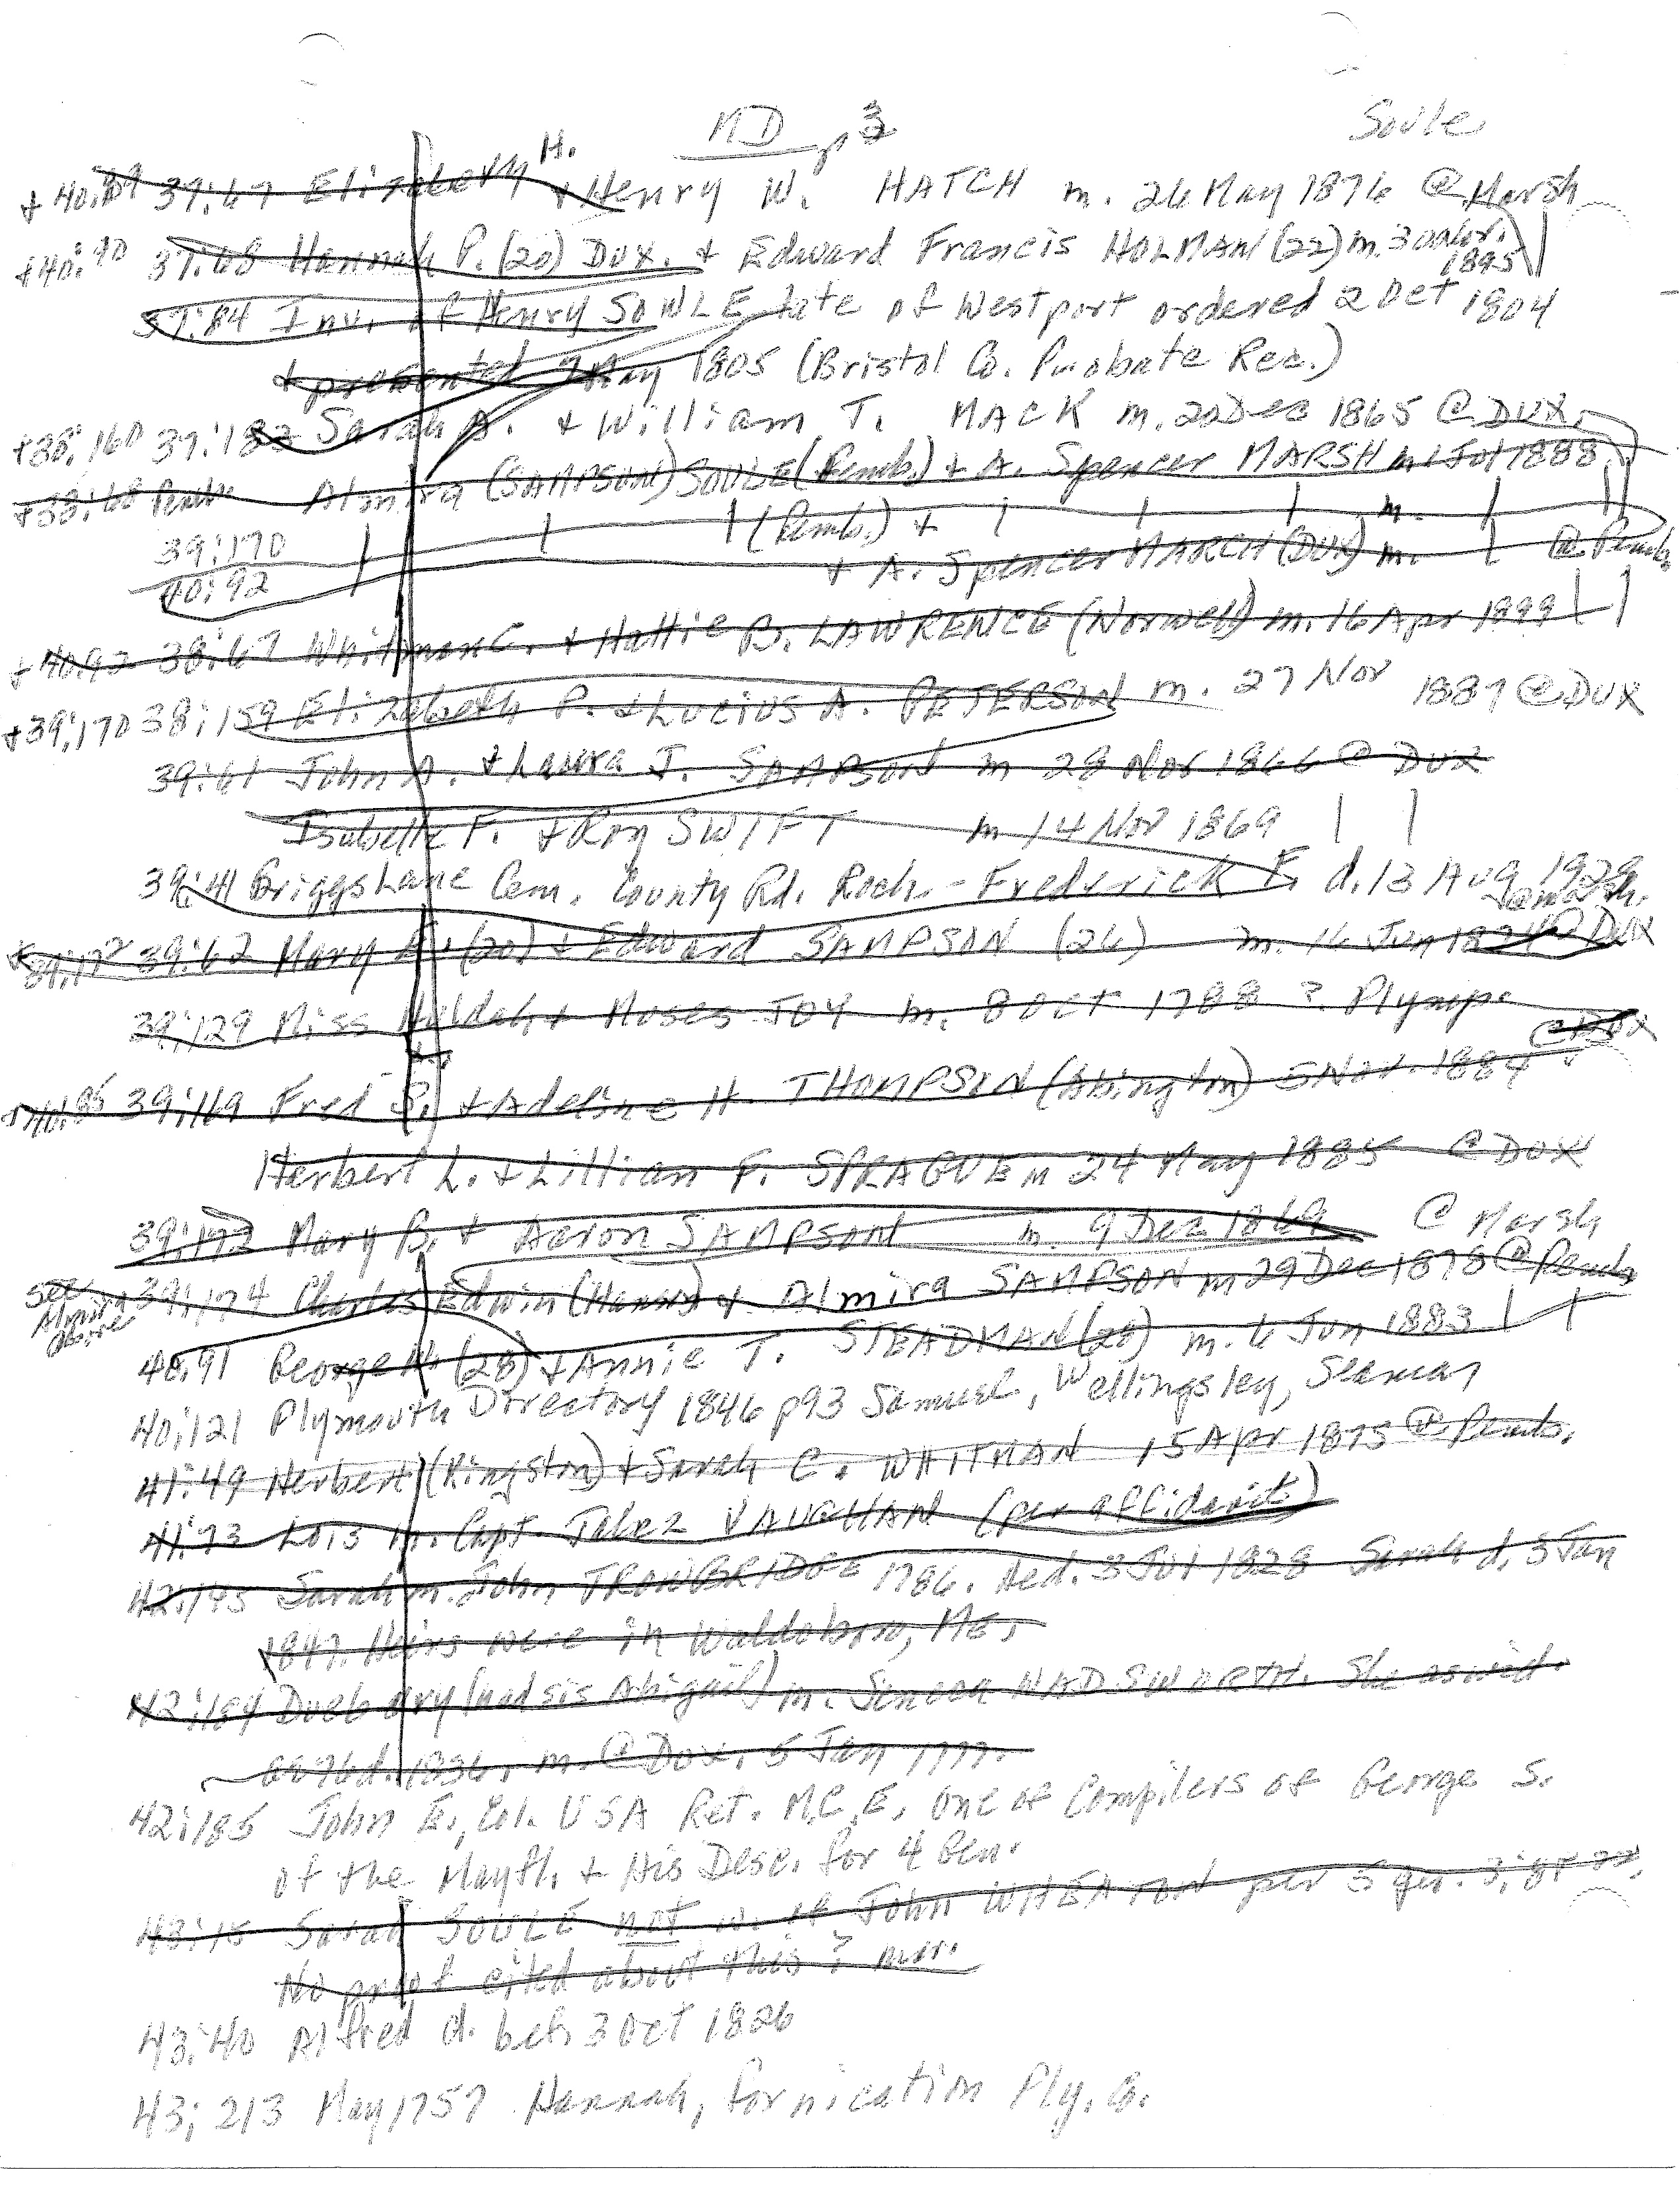 MD p 3 Soule
+ 40:89 37:67 Elizabeth H. + Henry W. HATCH m. 26 May 1876 @ Marsh
+40:90 37:68 Hannah P. (20) DUX. + Edward Francis HOLMAN (22) m. 30 Nov. 1895 | |
37:84 Inv. of Henry SOWLE late of Westport ordered 2 Oct 1804
+ presented 7 May 1805 (Bristol Co. Probate Rec.)
+38:160 37:182 Sarah A. + William T. MACK m. 20 Dec 1865 @ DUX.
+38:68 Pemb. Almira (SAMPSON) SOULE (Pemb.) + A. Spencer MARSH m. 1 Jul 1888
39:170 | | | (Pemb.) + | | | m. | |
40:92 | + A. Spencer MARCH (DUX) m. | @ Pemb.
+ 40:92 38:67 Whitman C. + Hattie B. LAWRENCE (Norwell) m. 16 Apr 1899 | |
+39:170 38:159 Elizabeth P. + Lucius A. PETERSON m. 27 Nov 1887 @ DUX
39:61 John A. + Laura J. SAMPSON m 28 Nov 1866 @ DUX
Isabelle F. + Roy SWIFT m 14 Nov 1869 | |
39:41 Briggs Lane Cem. County Rd. Roch. - Frederick F. d. 13 Aug 1929
39:172 39:62 Mary (20) + Edward SAMPSON (26) m. 16 Jun @ DUX
39:129 Miss Huldah + Moses JOY m. 8 Oct 1788 ? Plymp.
39:169 Fred S. + Adeline H. THOMPSON (Abington) 5 Nov. 1884 @ DUX
Herbert L. + Lillian F. SPRAGUE m 24 May 1885 @ DUX
39:172 Mary B. + Aaron SAMPSON m. 9 Dec 1869 @ Marsh
see Almira above 39:174 Charles Edwin (Hanson) + Almira SAMPSON m 29 Dec 1878 @ Pemb
40:91 George (28) + Annie T. STEADMAN (20) m. 6 Jun 1883 | |
40:121 Plymouth Directory 1846 p93 Samuel, Wellingsley, Seaman
41:49 Herbert (Kingston) + Sarah C. WHITMAN 15 Apr 1875 @ Pemb.
41:73 Lois m. Capt. Jabez VAUGHAN (per affidavit)
42:145 Sarah m. John TROWBRIDGE 1786. He d. 3 Jul 1828 Sarah d. 3 Jan
1847. Heirs were in Waldoboro, ME.
42:184 (had sis Abigail) m. Seneca WADSWORTH. She as wid.
1836. m. @ Dux. 5 Jan 1777.
42:185 John E., Col. USA Ret. M.C.E. One of Compilers of George S.
of the Mayfl. + His Desc. for 4 Gen.
43:15 Sarah SOULE not w. of John WHEATON per 5 gen. 3:
No proof cited about this ? mar.
43:40 Alfred d. bef. 3 Oct 1826
43:213 May 1757 Hannah, fornication Ply. Co.